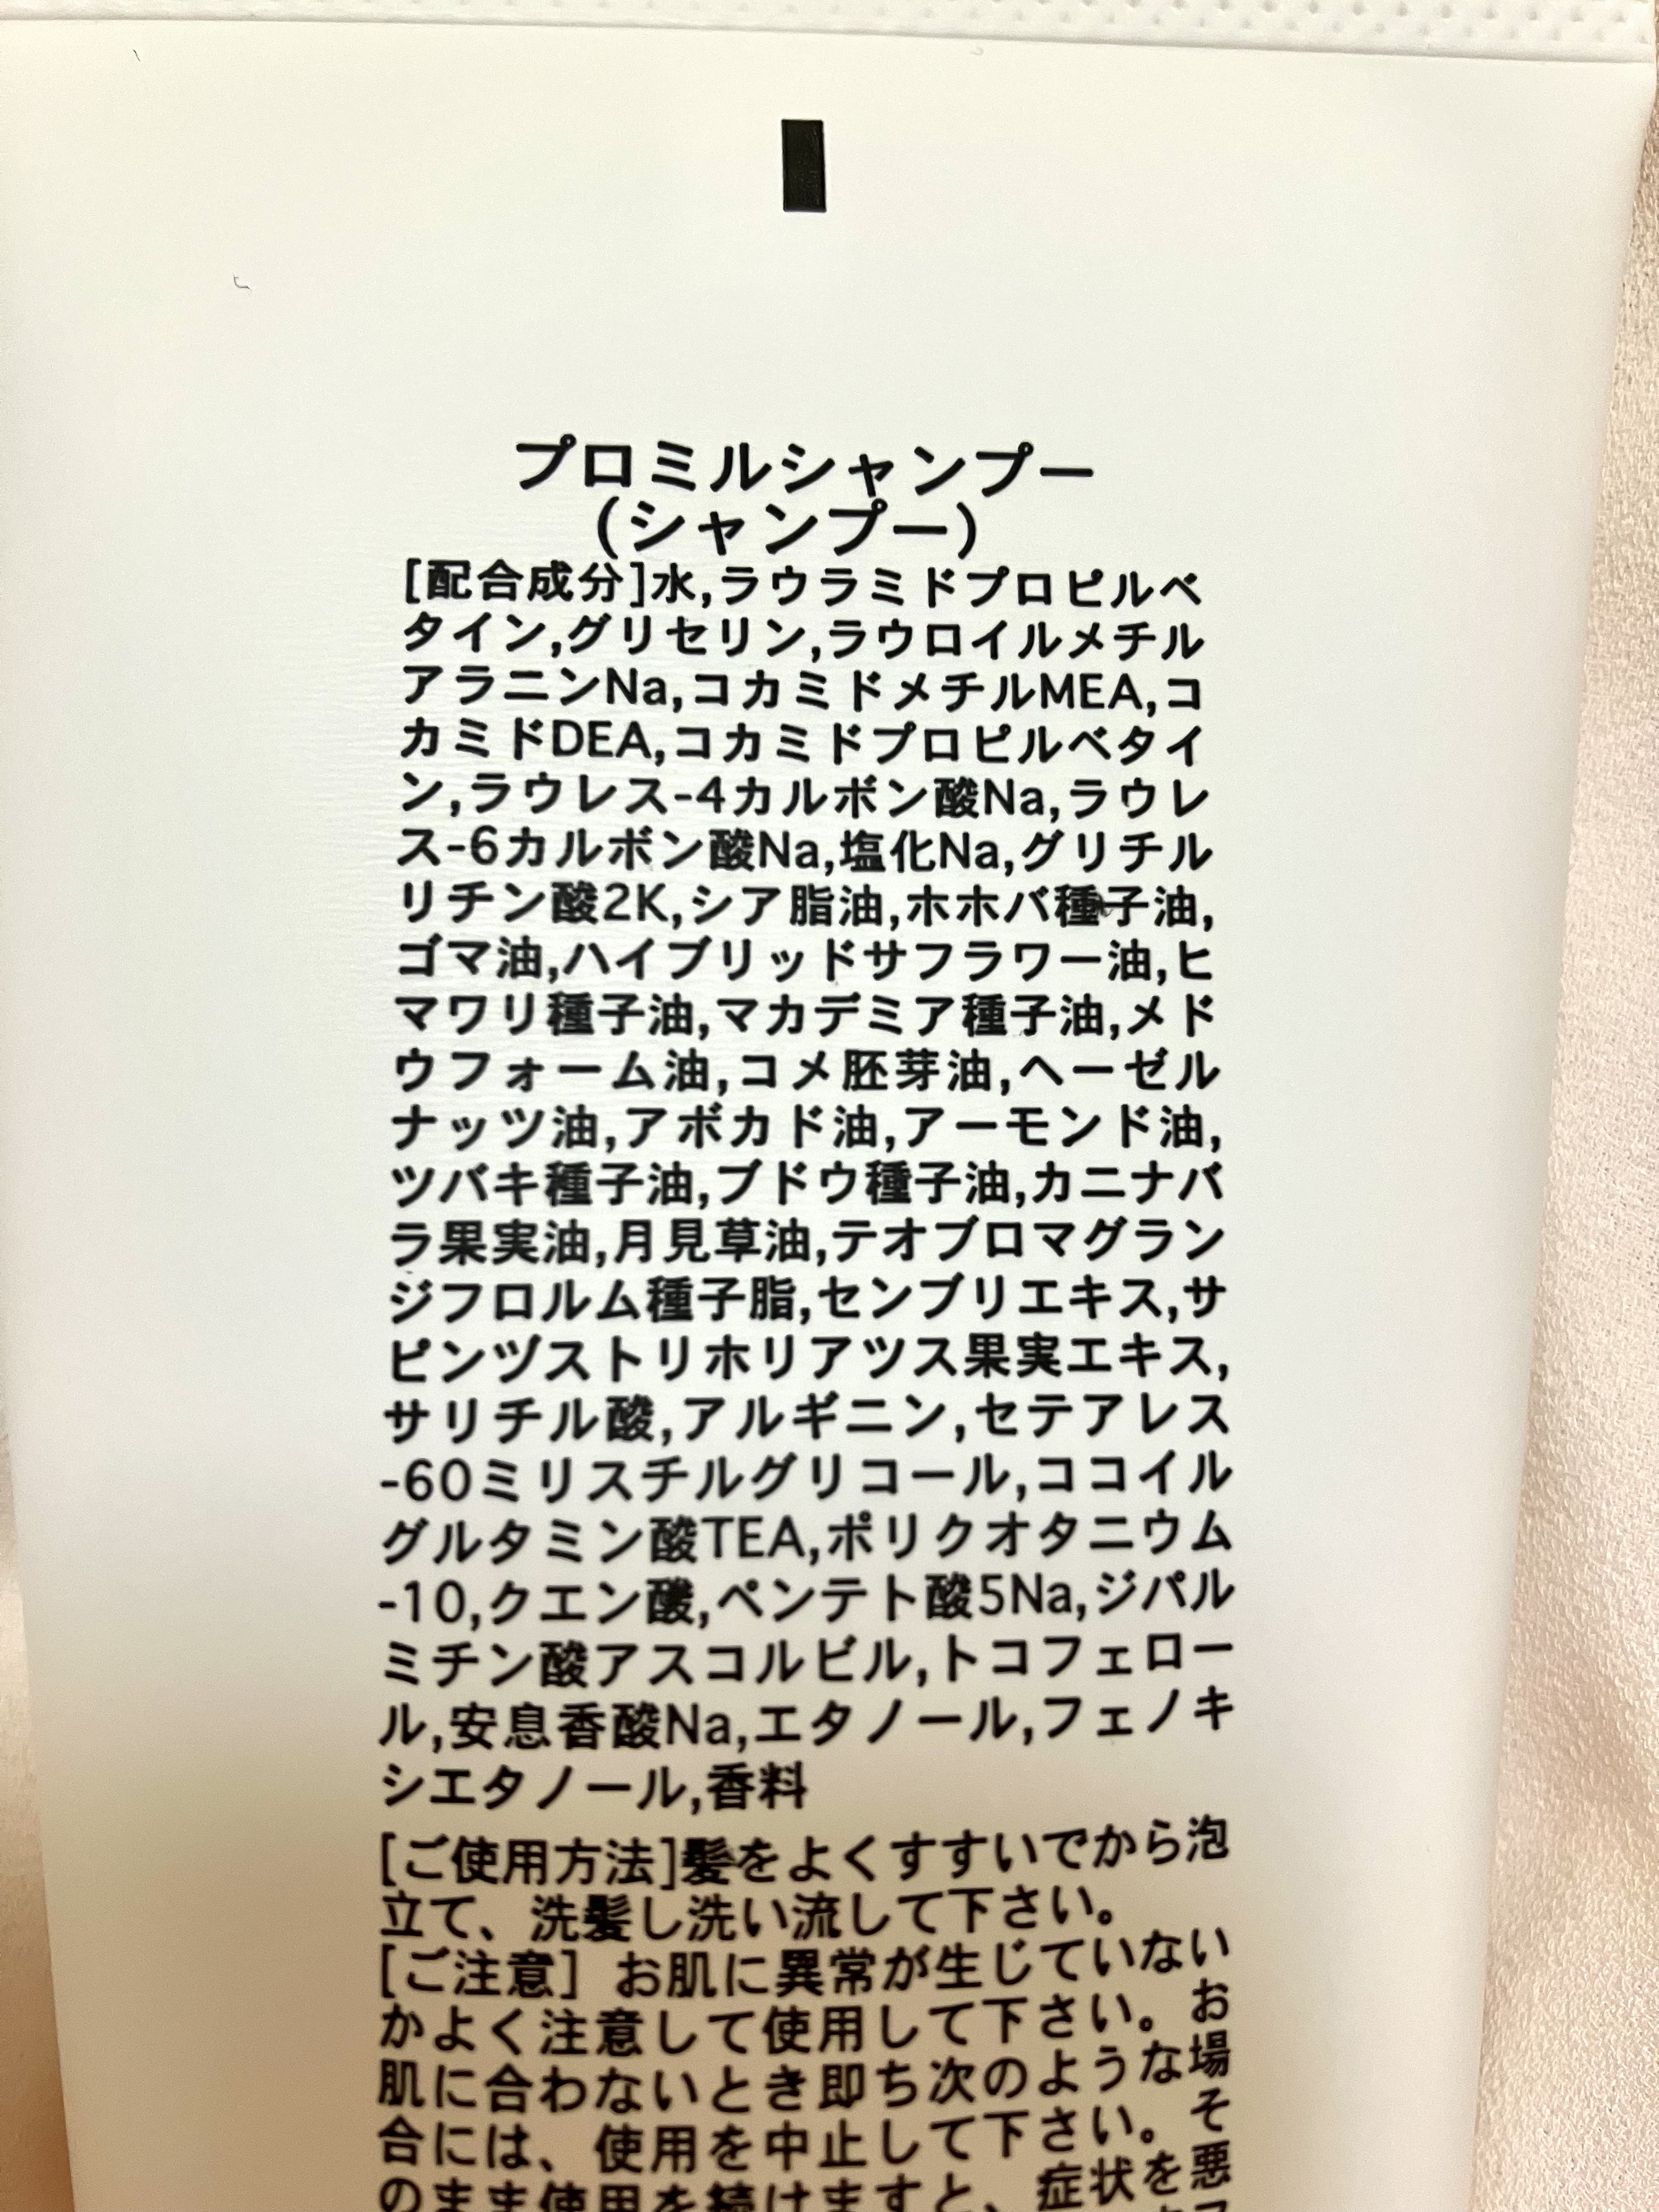 プロミルシャンプー
(シャンプー)
[配合成分]水,ラウラミドプロピルベ
タイン,グリセリン,ラウロイルメチル
アラニンNa,コカミドメチルMEA,コ
カミドDEA,コカミドプロピルベタイ
ン,ラウレス-4カルボン酸Na,ラウレ
ス-6カルボン酸Na,塩化Na,グリチル
リチン酸2K,シア脂油,ホホバ種子油,
ゴマ油,ハイブリッドサフラワー油,ヒ
マワリ種子油,マカデミア種子油,メド
ウフォーム油,コメ胚芽油,ヘーゼル
ナッツ油,アボカド油,アーモンド油,
ツバキ種子油,ブドウ種子油,カニナバ
ラ果実油,月見草油,テオブロマグラン
ジフロルム種子脂,センブリエキス,サ
ピンヅストリホリアツス果実エキス,
サリチル酸,アルギニン,セテアレス
-60ミリスチルグリコール,ココイル
グルタミン酸TEA,ポリクオタニウム
-10,クエン酸,ペンテト酸5Na,ジパル
ミチン酸アスコルビル,トコフェロー
ル,安息香酸Na,エタノール,フェノキ
シエタノール,香料
[ご使用方法]髪をよくすすいでから泡
立て、洗髪し洗い流して下さい。
[ご注意] お肌に異常が生じていない
かよく注意して使用して下さい。お
肌に合わないとき即ち次のような場
合には、使用を中止して下さい。そ
のまま使用を続けますと、症状を悪